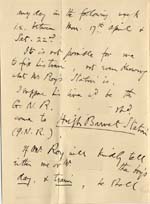 any day in the following week
i.e. between Mon. 17th April &
Sat. 22nd.
It is not possible for me
to fix his train, not even knowing
what Mr Roy's Station is.
I suppose his line wd be the
G. N. R.
come to High Barnet Station
(G.N.R.)
If Mr Roy will kindly tell
either me or Mr the
day, & train, he shall